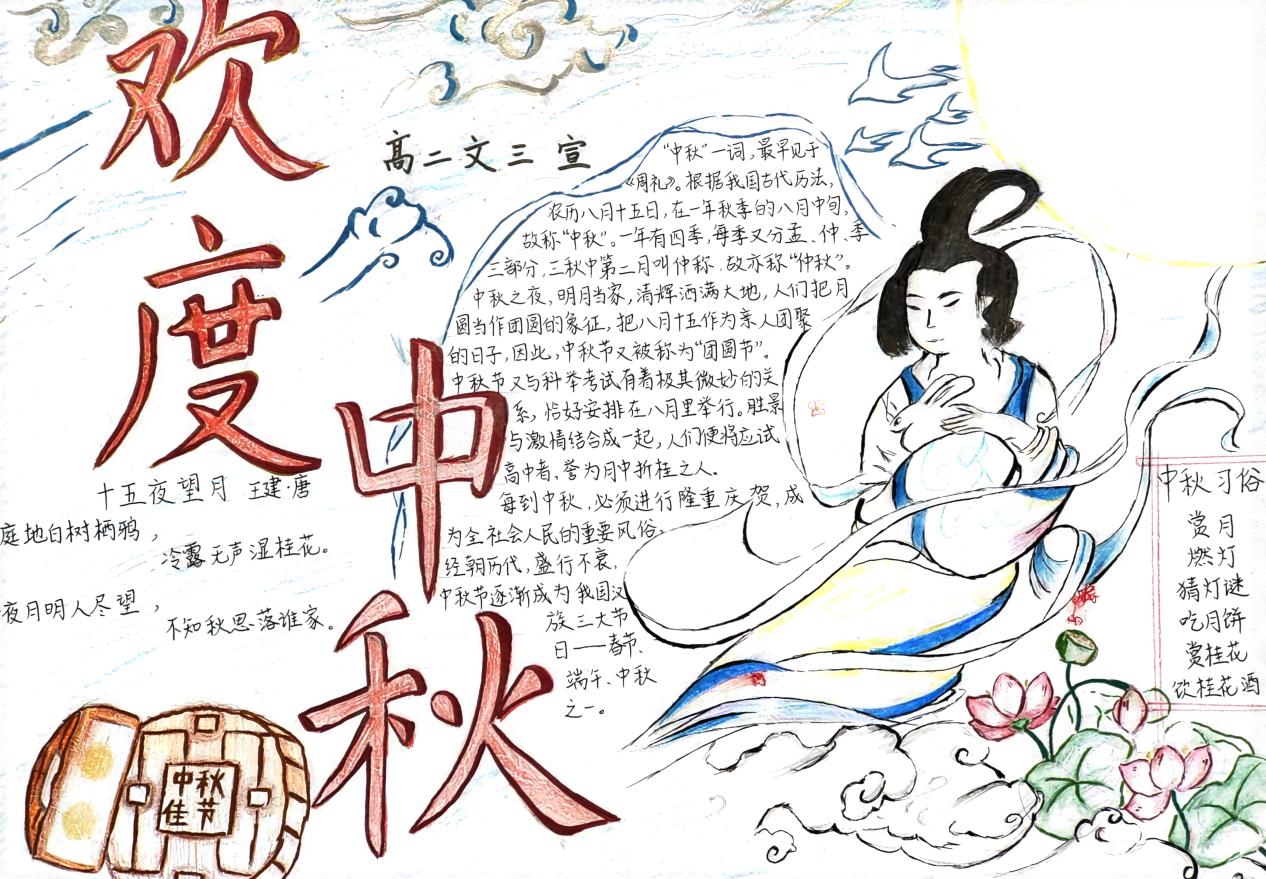 欢度
中秋
高二文三 宣
“中秋”一词,最早见于
《周礼》。根据我国古代历法,
农历八月十五日,在一年秋季的八月中旬,
故称“中秋”。一年有四季,每季又分孟、仲、季
三部分,三秋中第二月叫仲称.故亦称“仲秋”。
中秋之夜,明月当家,清辉洒满大地,人们把月
圆当作团圆的象征,把八月十五作为亲人团聚
的日子,因此,中秋节又被称为“团圆节”。
中秋节又与科举考试有着极其微妙的关
系,恰好安排在八月里举行。胜景
与激情结合成一起,人们便将应试
高中者,誉为月中折桂之人。
每到中秋,必须进行隆重庆贺,成
为全社会人民的重要风俗,
经朝历代,盛行不衰,
中秋节逐渐成为我国汉
族三大节
日——春节、
端午、中秋
之一。
十五夜望月 王建·唐
庭地白树栖鸦,
冷露无声湿桂花。
夜月明人尽望,
不知秋思落谁家。
中秋
佳节
中秋习俗
赏月
燃灯
猜灯谜
吃月饼
赏桂花
饮桂花酒